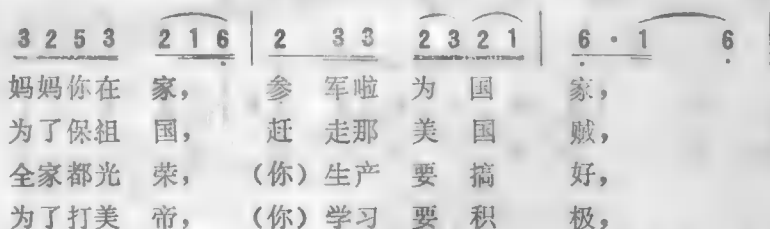 3 2 5 3 2 1 6 | 2 3 3 2 3 2 1 | 6 · 1 6 |
妈妈你在 家， 参 军啦 为 国 家，
为了保祖 国， 赶 走那 美 国 贼，
全家都光 荣， （你）生产 要 搞 好，
为了打美 帝， （你）学习 要 积 极，